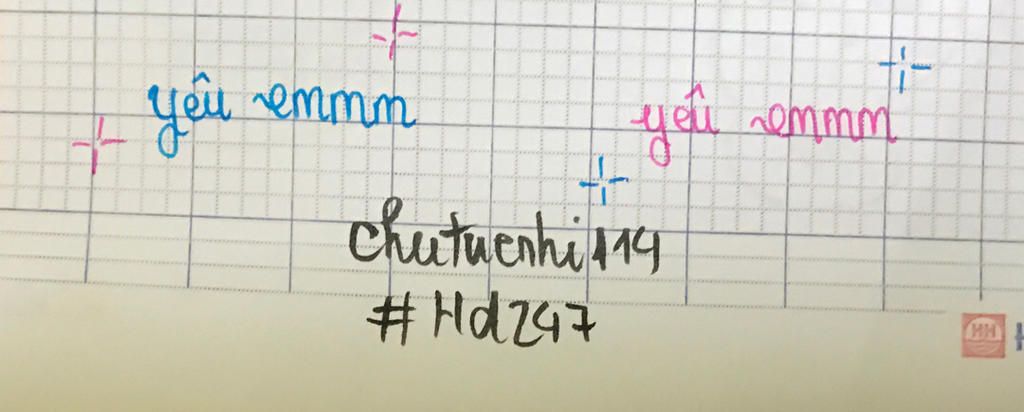 yêu emmm
yêu emmm
chutuenhi114
#Hd247
HH